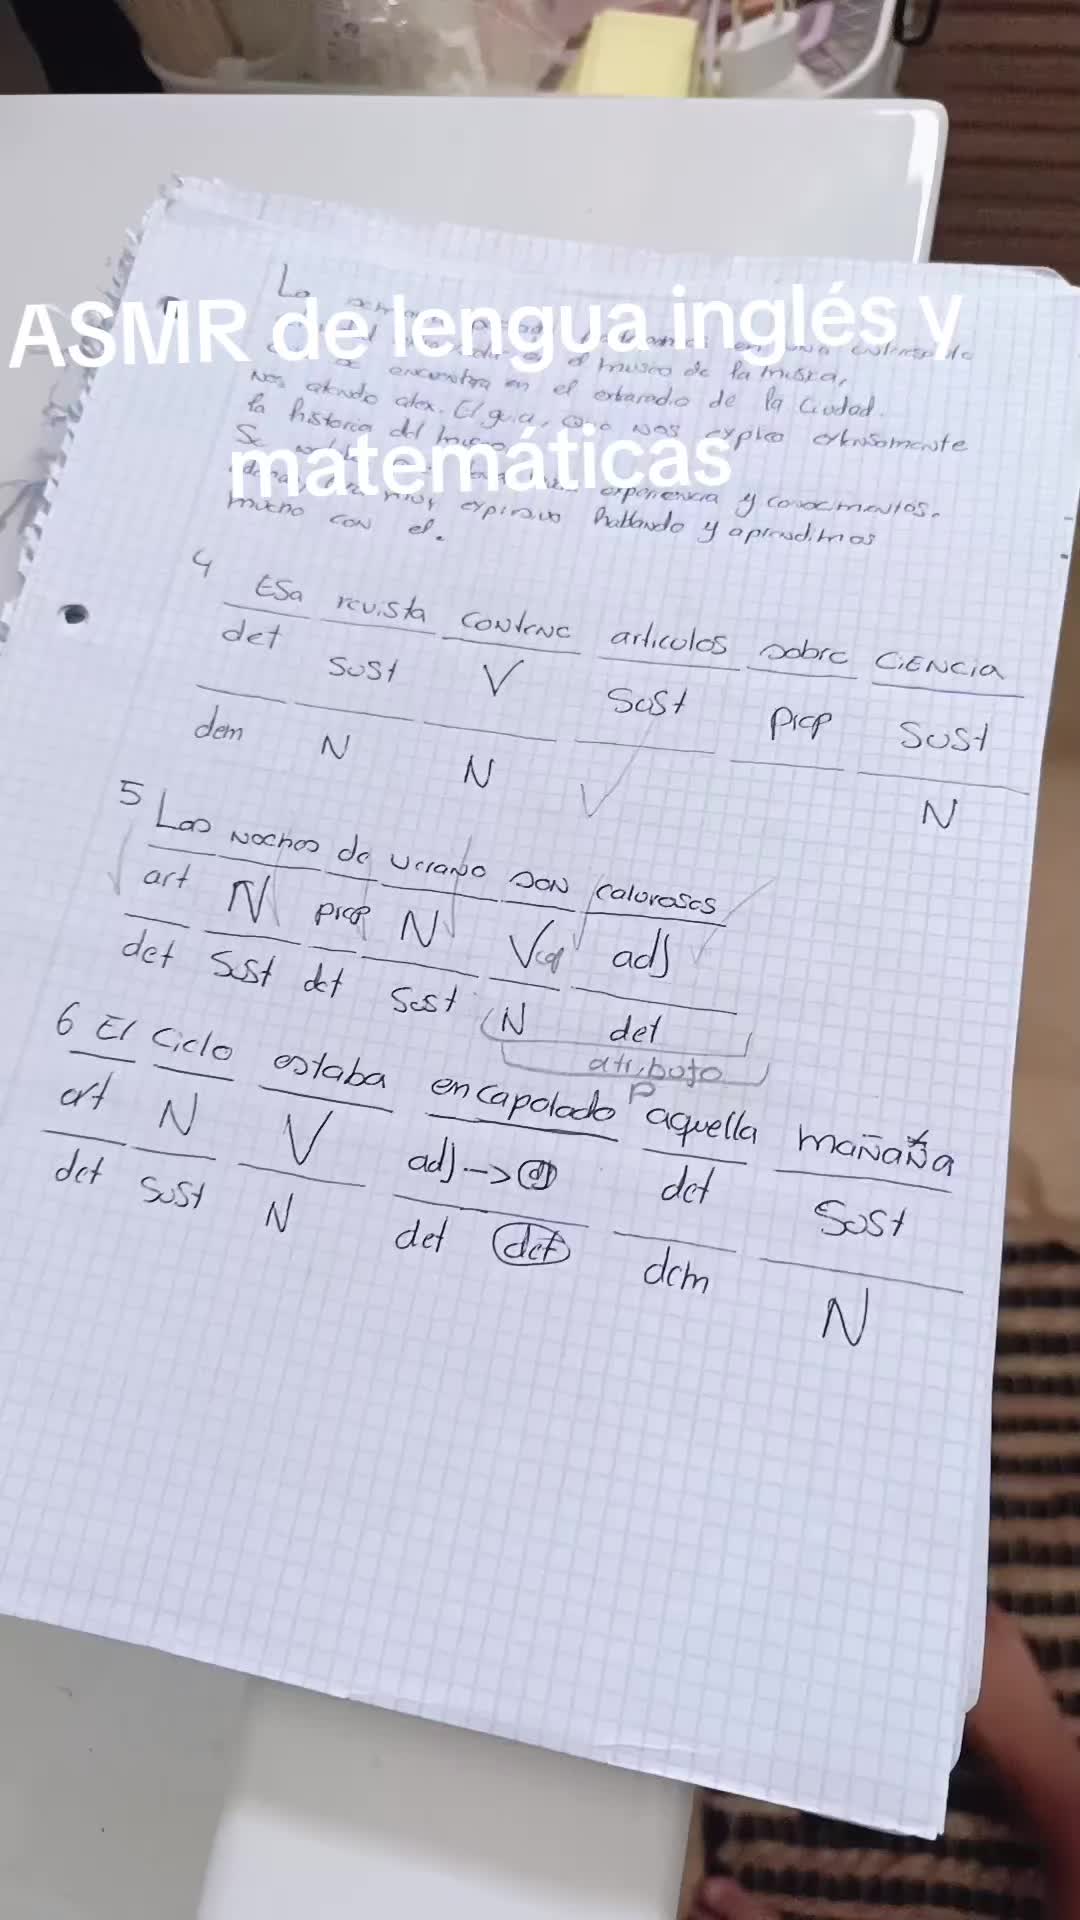 ASMR de lengua inglés y
matemáticas
La
en el museo de la musica,
encuentra en el extraradio de la Ciudad.
Nos atendio alex. El guia, que nos explico extensamente
la historia del museo
Se experiencia y conocimientos.
muy expresivo hablando y aprendimos
mucho con el.
4 Esa revista contiene articulos sobre CIENCIA
det Sust V Sust prep Sust
dem N N N
5 Las Noches de verano son calurosas
art N prep N Vcop adj
det Sust det Sust N det
atributo
6 El Cielo estaba encapolado aquella mañana
art N V adj --> det Sust
det Sust N det det dem N